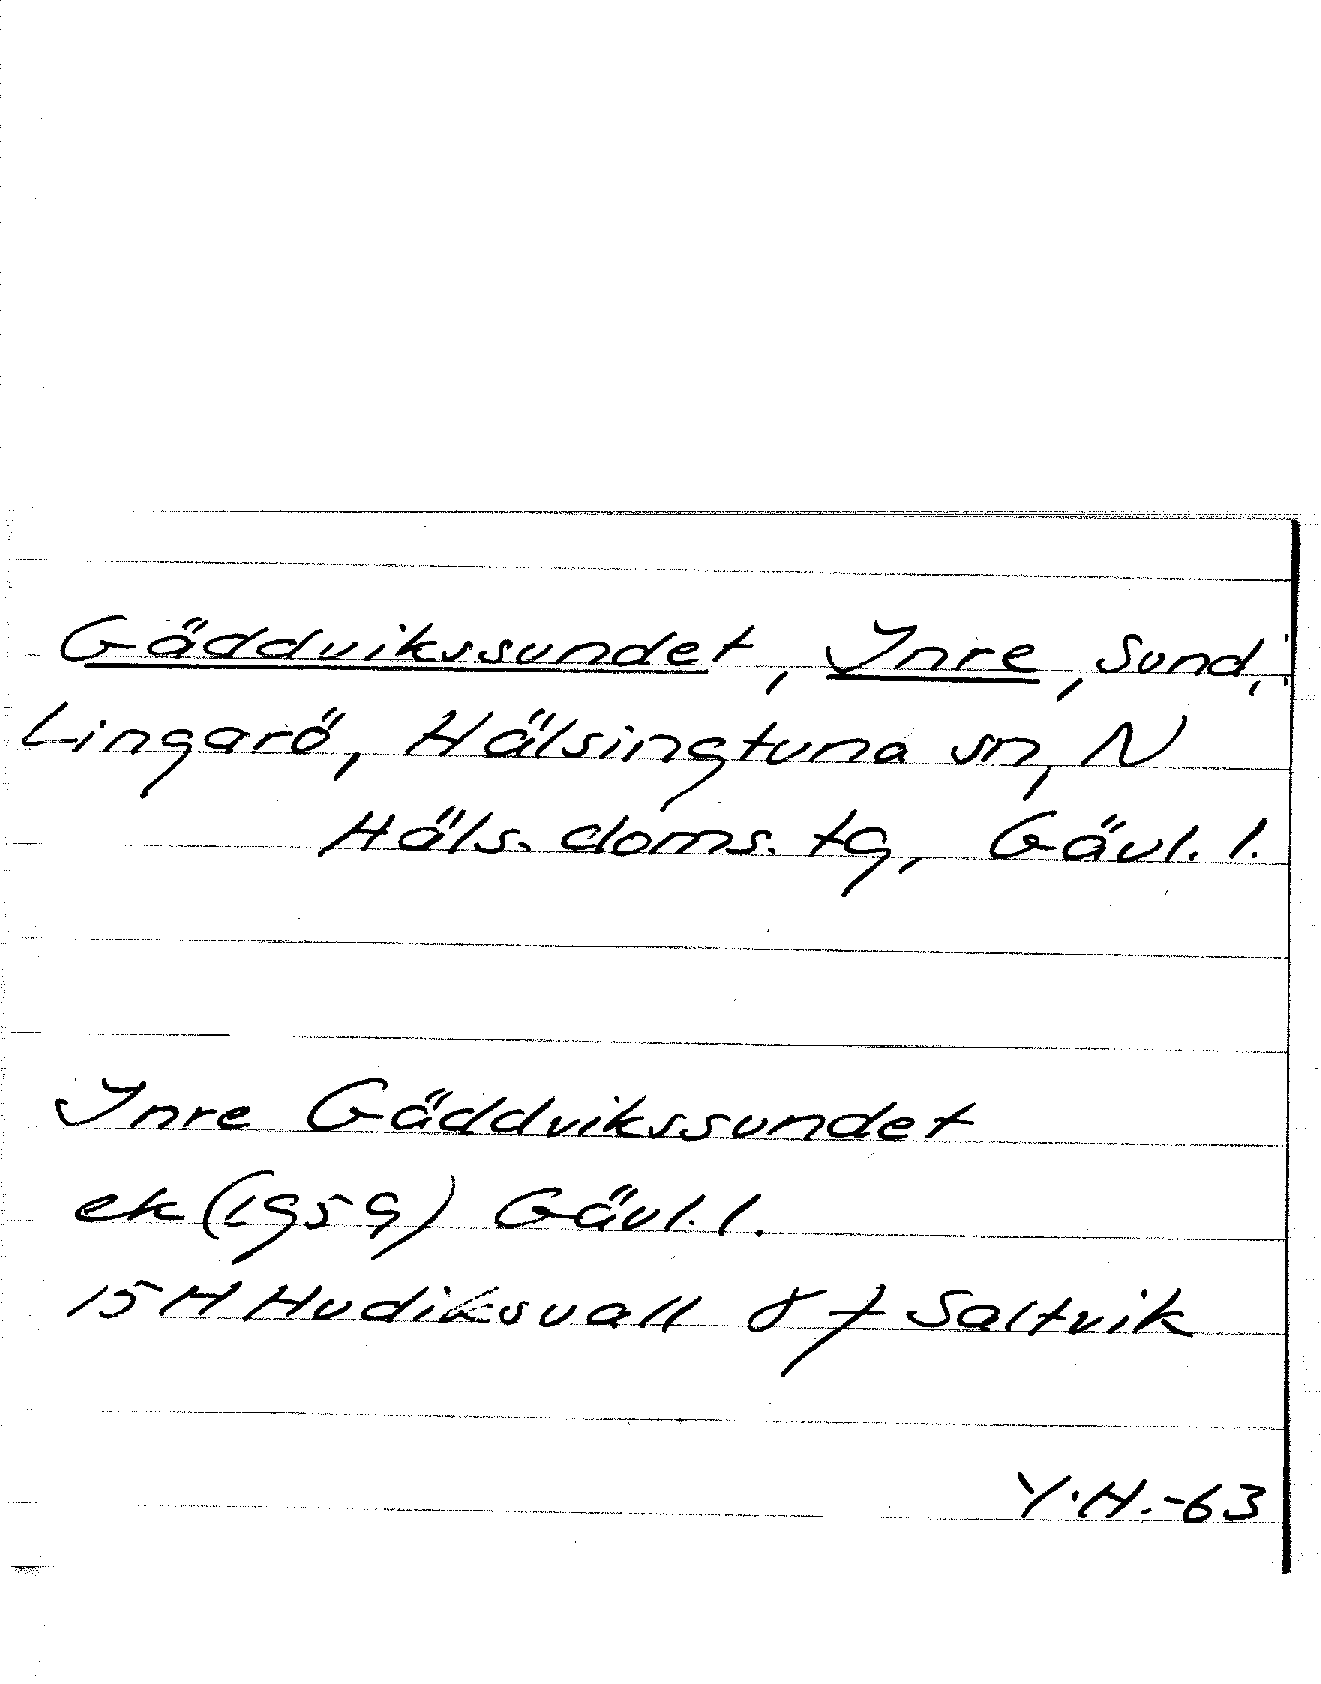 Gäddvikssundet, Inre, Sund,
Lingarö, Hälsingtuna sn, N
Häls. doms. tg, Gävl. l.
Inre Gäddvikssundet
ek (1959) Gävl. l.
15H Hudiksvall 8 f Saltvik
Y.H.-63